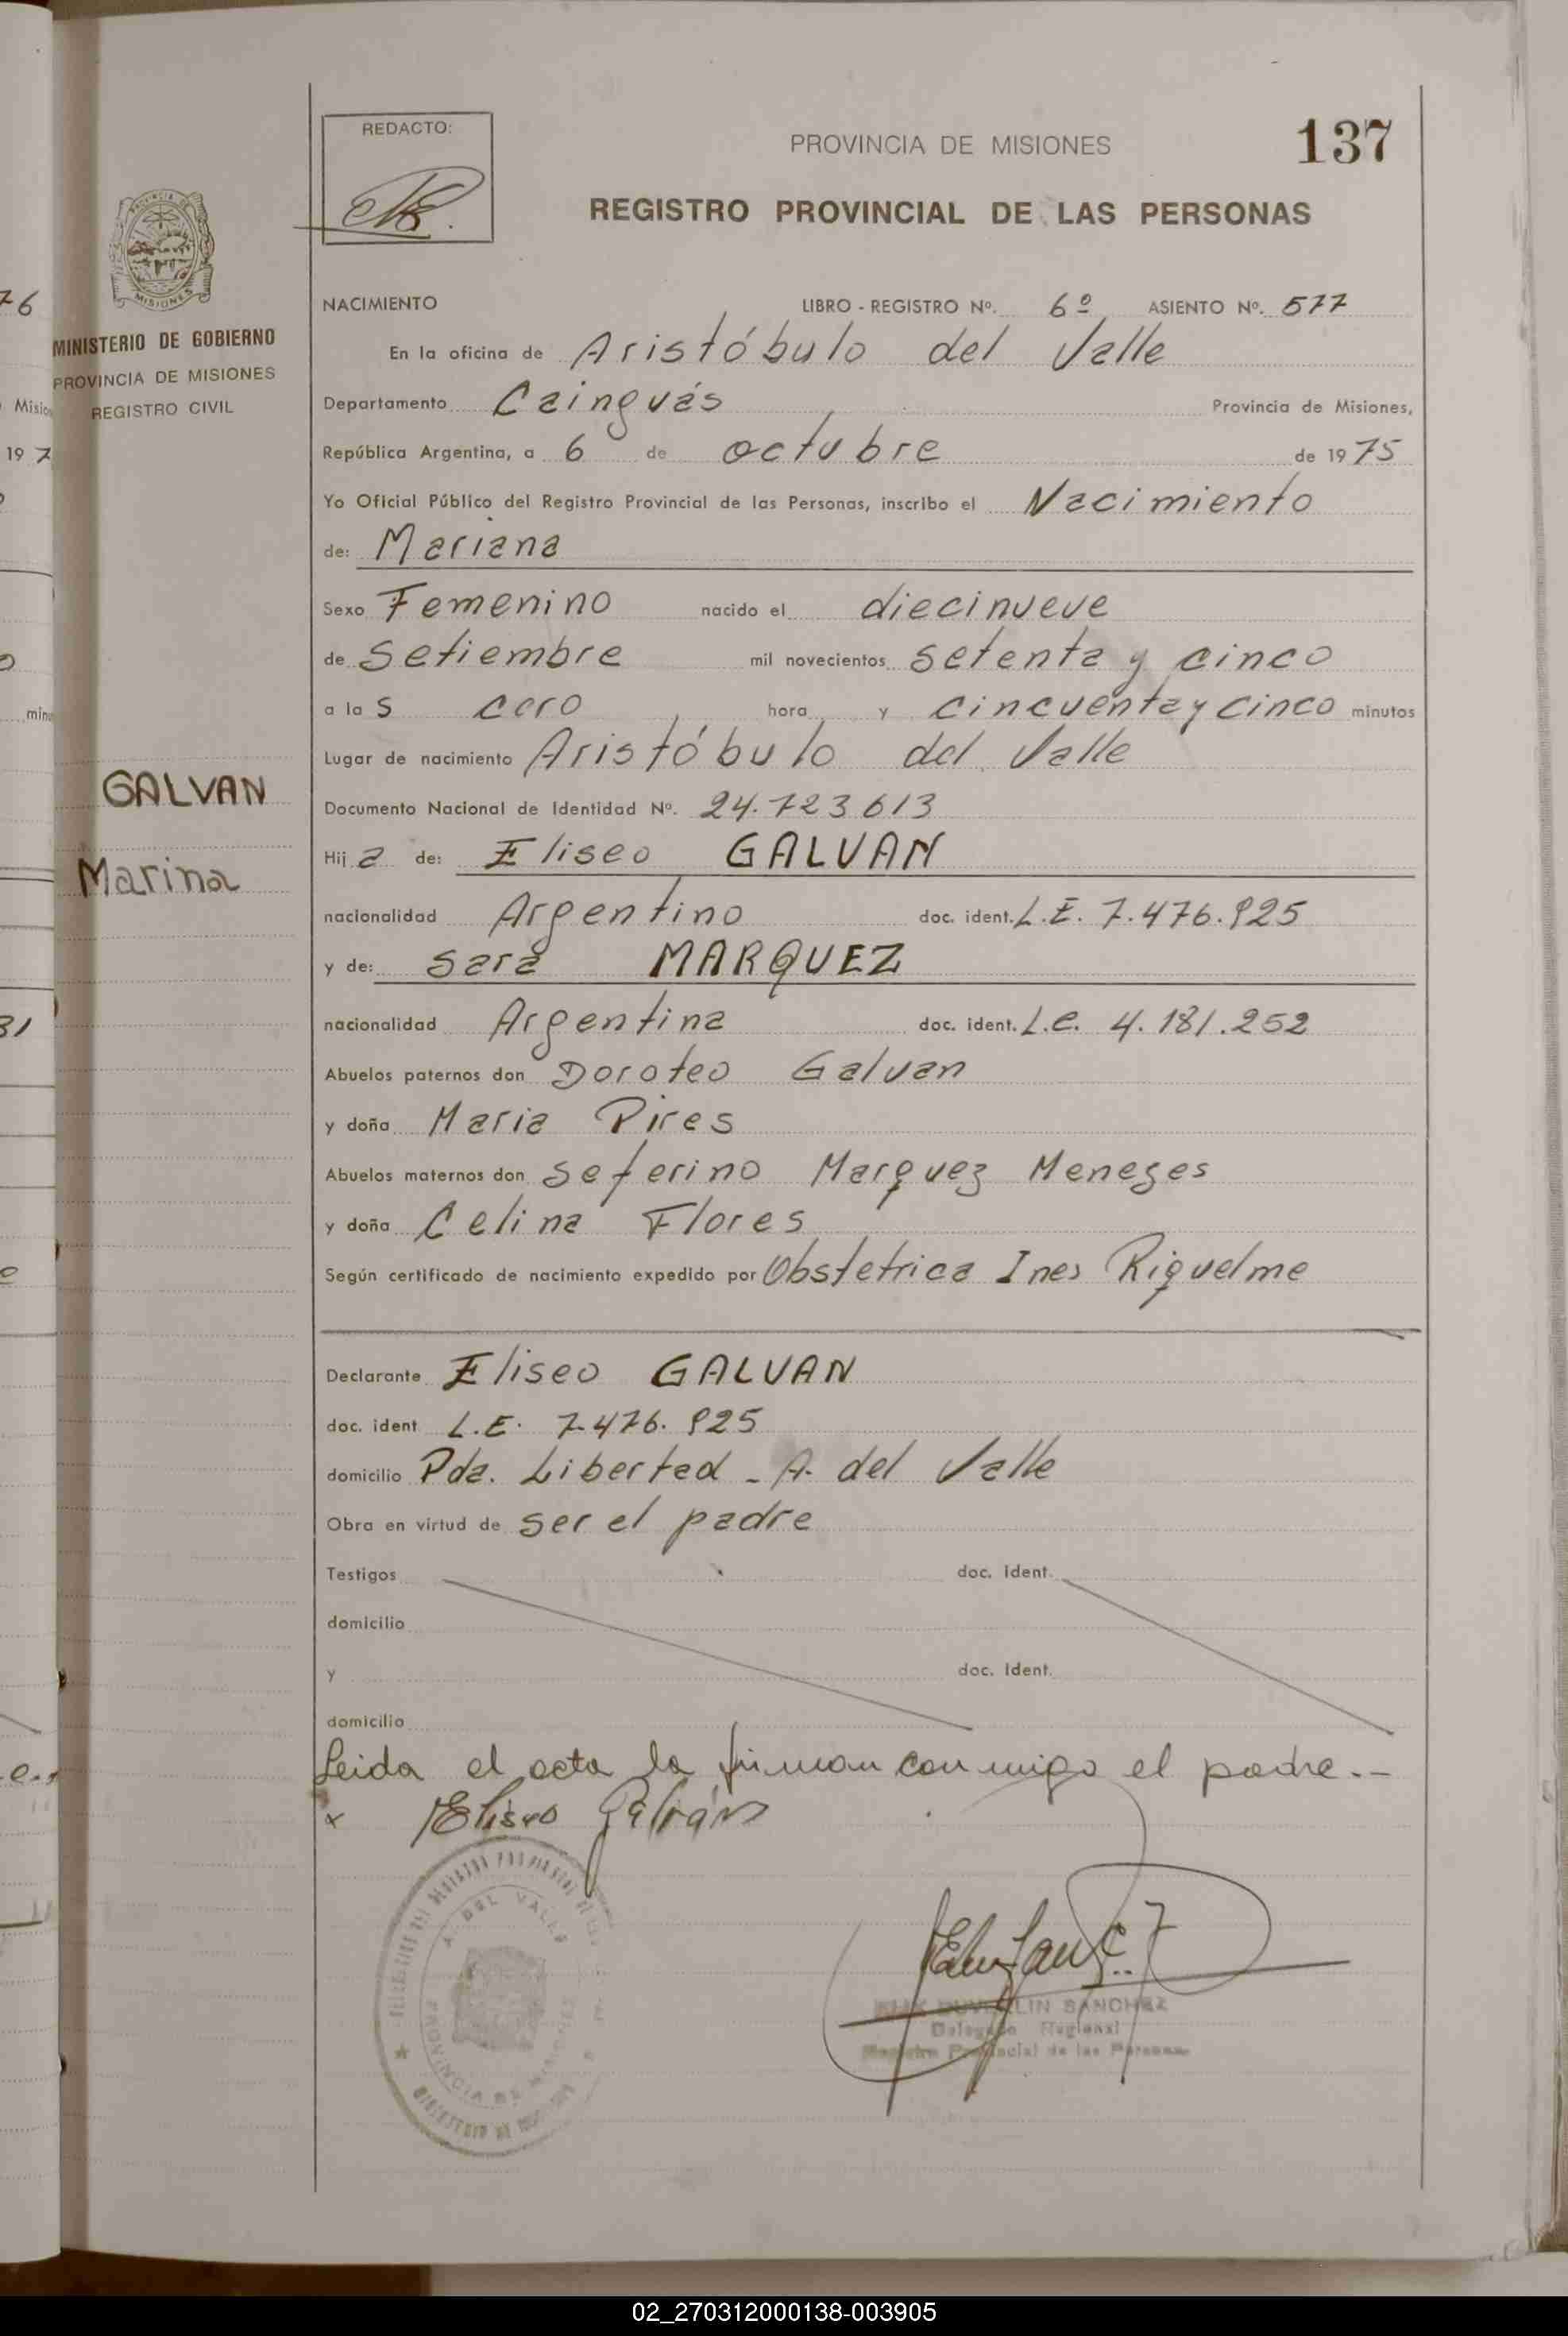 REDACTO:
PROVINCIA DE MISIONES
137
REGISTRO PROVINCIAL DE LAS PERSONAS
MINISTERIO DE GOBIERNO
PROVINCIA DE MISIONES
REGISTRO CIVIL
NACIMIENTO LIBRO - REGISTRO Nº. 6º ASIENTO Nº. 577
En la oficina de Aristóbulo del Valle
Departamento Cainguás Provincia de Misiones,
República Argentina, a 6 de octubre de 1975
Yo Oficial Público del Registro Provincial de las Personas, inscribo el Nacimiento
de: Mariana
Sexo Femenino nacido el diecinueve
de Setiembre mil novecientos setenta y cinco
a las cero hora y cincuenta y cinco minutos
Lugar de nacimiento Aristóbulo del Valle
GALVAN
Marina
Documento Nacional de Identidad Nº. 24.723613
Hija de: Eliseo GALVAN
nacionalidad Argentino doc. ident. L.E. 7.476.925
y de: Sara MARQUEZ
nacionalidad Argentina doc. ident. L.C. 4.181.252
Abuelos paternos don Doroteo Galvan
y doña Maria Pires
Abuelos maternos don Seferino Marquez Menezes
y doña Celina Flores
Según certificado de nacimiento expedido por Obstetrica Ines Riquelme
Declarante Eliseo GALVAN
doc. ident L.E. 7.476.925
domicilio Pda. Libertad - A. del Valle
Obra en virtud de ser el padre
Testigos doc. Ident.
domicilio
y doc. Ident.
domicilio
Leida el acta la firman conmigo el padre.-
x Eliseo Galván
A. DEL VALLE
PROVINCIA DE MISIONES
SANCHEZ
Delegado Regional
Registro Provincial de las Personas
02_270312000138-003905